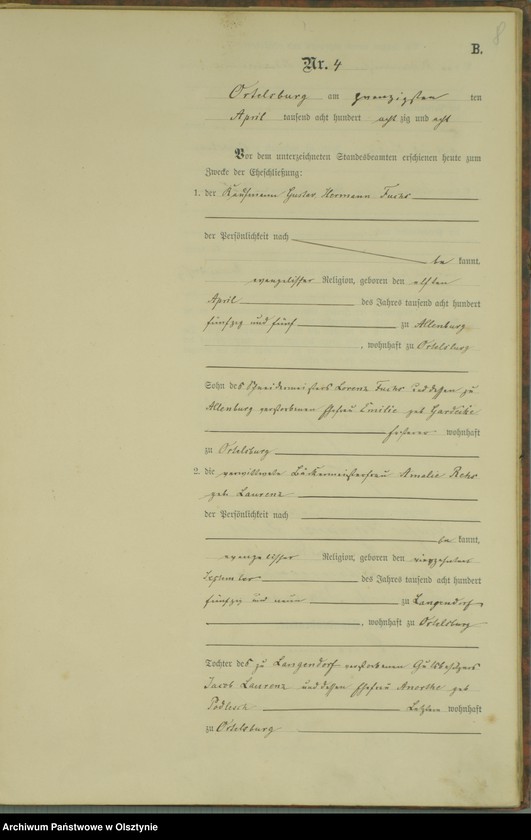 8
B.
Nr. 4
Ortelsburg am zwanzigsten ten
April tausend acht hundert acht zig und acht
Vor dem unterzeichneten Standesbeamten erschienen heute zum
Zwecke der Eheschließung:
1. der Kaufmann Gustav Hermann Fuchs
der Persönlichkeit nach
be kannt,
evangelischer Religion, geboren den elften
April des Jahres tausend acht hundert
fünfzig und fünf zu Allenburg
, wohnhaft zu Ortelsburg
Sohn des Schneidermeisters Lorenz Fuchs und dessen zu
Allenburg verstorbenen Ehefrau Emilie geb
wohnhaft
zu Ortelsburg
2. die verwittwete Bäckermeisterfrau Amalie
geb. Laurenz
der Persönlichkeit nach
be kannt,
evangelischer Religion, geboren den vierzehnten
September des Jahres tausend acht hundert
fünfzig und neun zu Langendorf
, wohnhaft zu Ortelsburg
Tochter des zu Langendorf verstorbenen Gutsbesitzers
Jacob Laurenz und dessen Ehefrau geb
Letztere wohnhaft
zu Ortelsburg
Archiwum Państwowe w Olsztynie